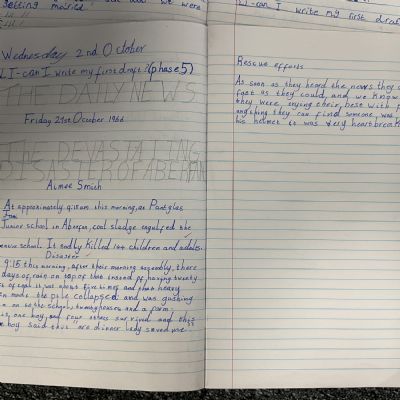 getting married. and we were
LI - can I write my first draf
Wednesday 2nd October
LI - can I write my first draft? (phase 5)
THE DAILY NEWS
Friday 21st October 1966
THE DEVASTATING
DISASTER OF ABERFAN
Aimee Smith
At approximately 9:15am this morning, as Pantglas
Junior school in Aberfan, coal sludge engulfed the
school. It sadly killed 144 children and adults.
Disaster
9:15 this morning, after their morning assembly, there
days of rain on top of that insead of having twenty
of coal it was about five times and then heavy
made the pile collapsed and was gushing
on to the school, twenty houses and a farm
one boy, and four others survived and this
boy said this "are dinner lady saved us
Rescue efforts
As soon as they heard the news they
fast as they could, and we know
they were trying their best with
anything they can find someone was
his helmet it was very heartbreak